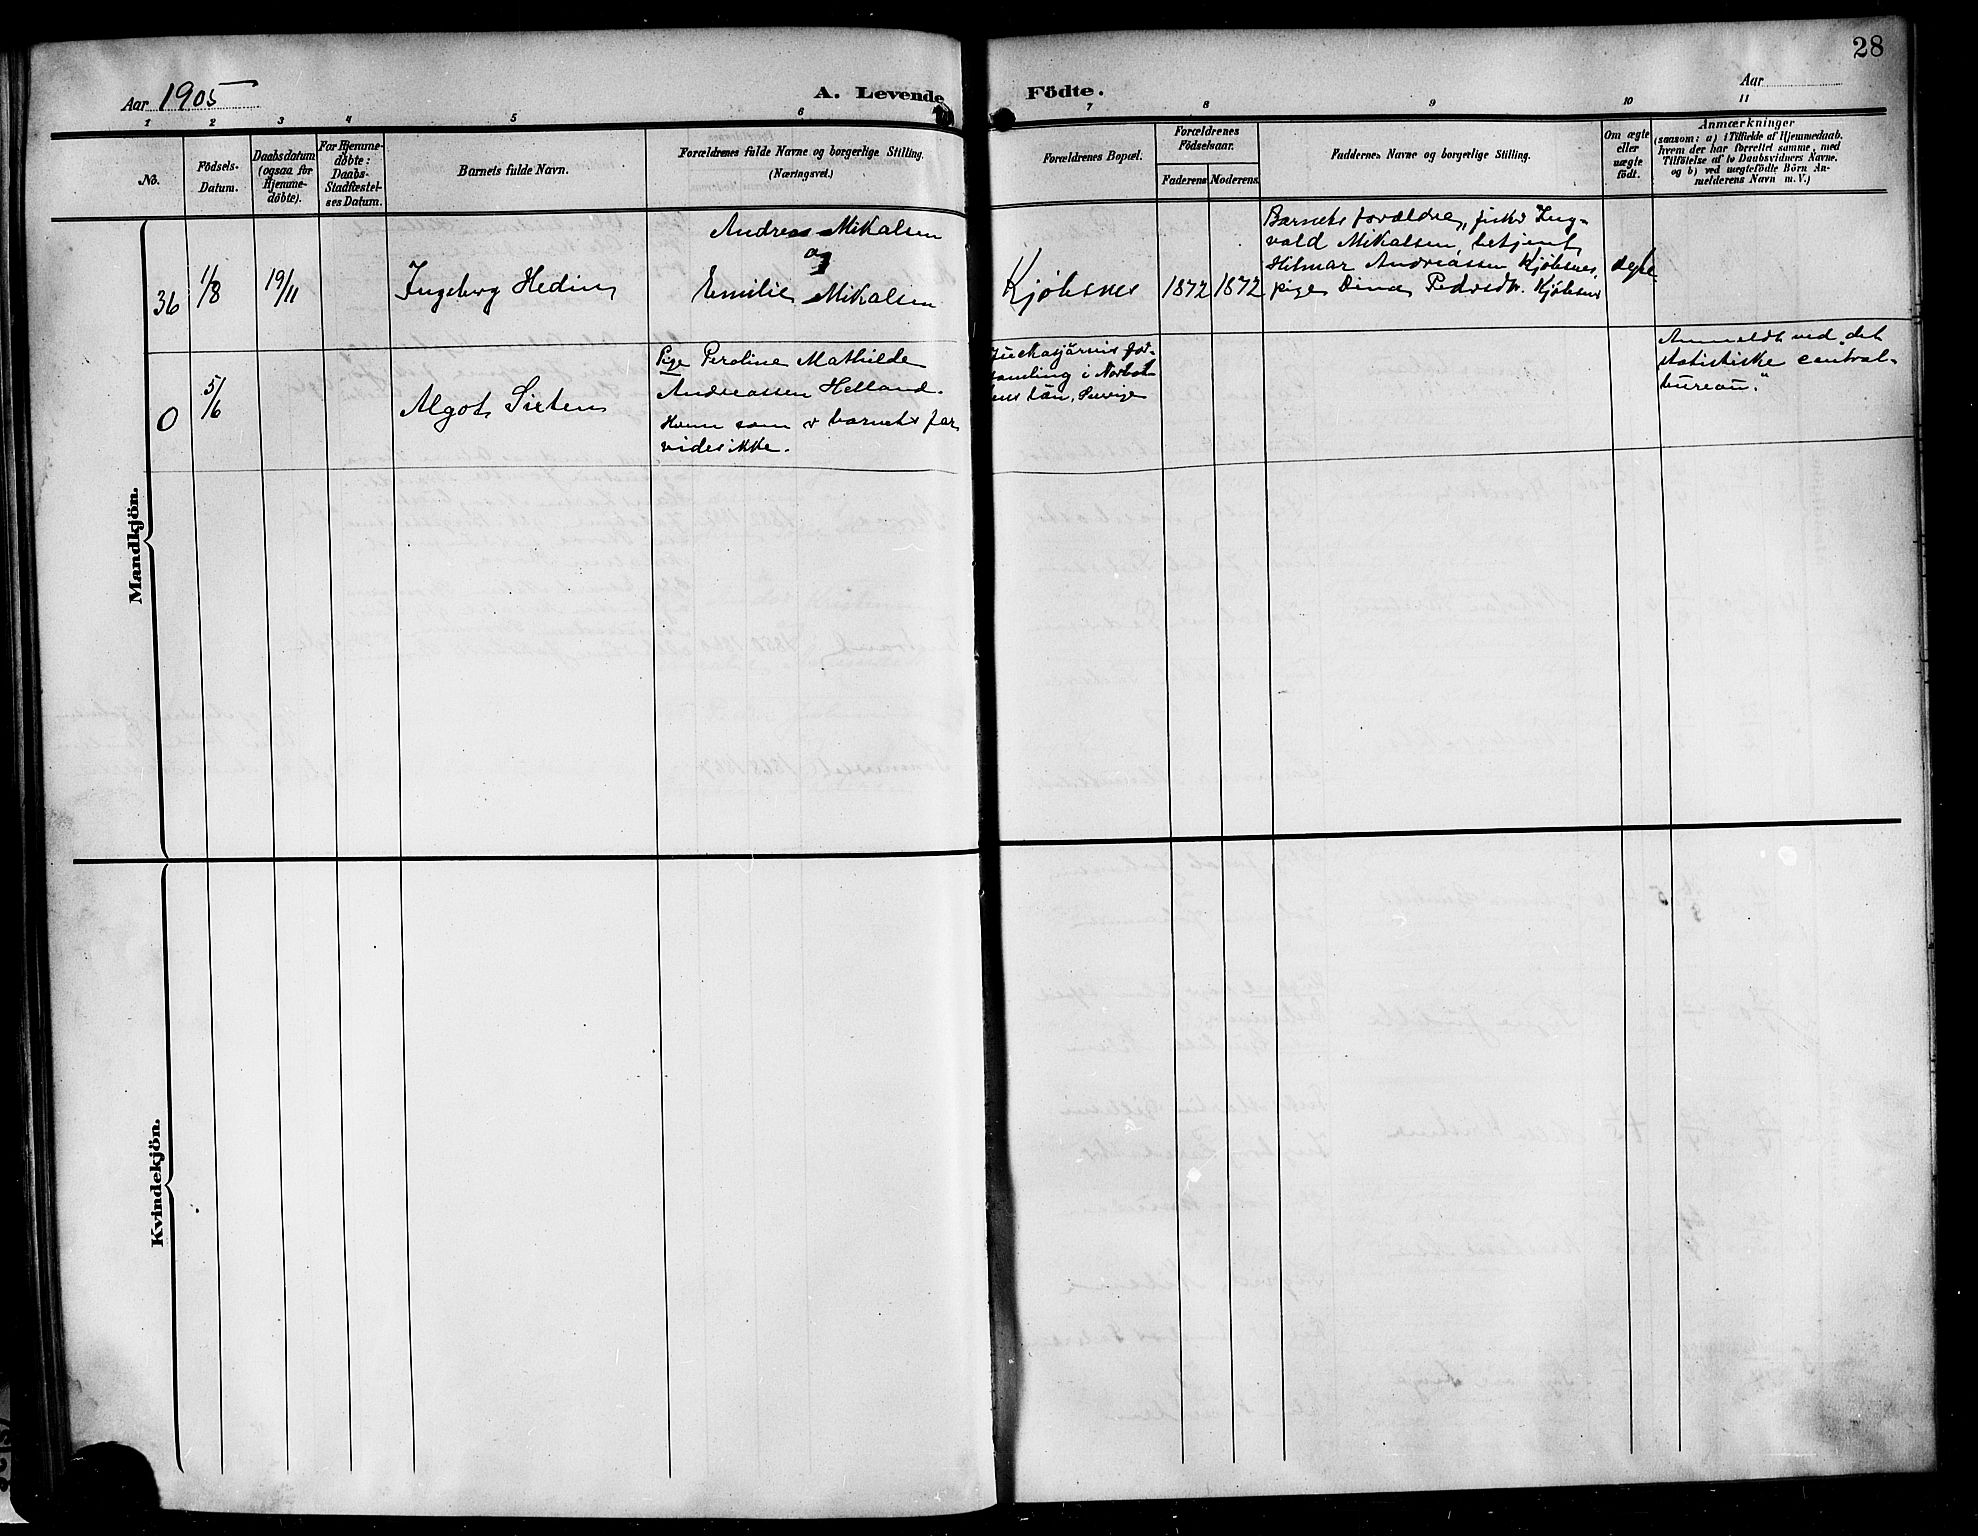 28
Aar 1905
A. Levende Födte.
Aar
1 2 3 4 5 6 7 8 9 10 11
No.
Födsels-
Datum.
Daabsdatum
(ogsaa for
Hjemme-
døbte).
For Hjemme-
døbte:
Daabs-
Stadfæstel-
ses Datum.
Barnets fulde Navn.
Forældrenes fulde Navne og borgerlige Stilling.
(Næringsvei.)
Forældrenes Bopæl.
Forældrenes
Födselsaar.
Faderens
Moderens
Faddernes Navne og borgerlige Stilling.
Om ægte
eller
uægte
födt.
Anmærkninger
(saasom: a) i Tilfælde af Hjemmedaab,
hvem der har forrettet samme, med
Tilföielse af to Daabsvidners Navne,
og b) ved uægtefödte Börn An-
melderens Navn m. V.)
Mandkjön.
36
1/8
19/11
Ingeborg Hedin
Andreas Mikalsen
og
Emilie Mikalsen
Kjöbsnes
1872
1872
Barnets forældre, fisker Ing-
vald Mikalsen, betjent
Hilmar Andreassen Kjöbsnes,
pige Dina Pedersdtr. Kjöbsnes
ægte
0
5/6
Algot Sixten
Pige Peroline Mathilde
Andreassen Helland.
Hvem som er barnets far
vides ikke.
Juckasjärvis for-
samling i Norbot-
tens län, Sverige
Anmeldt ved "det
statistiske central-
bureau."
Kvindekjön.